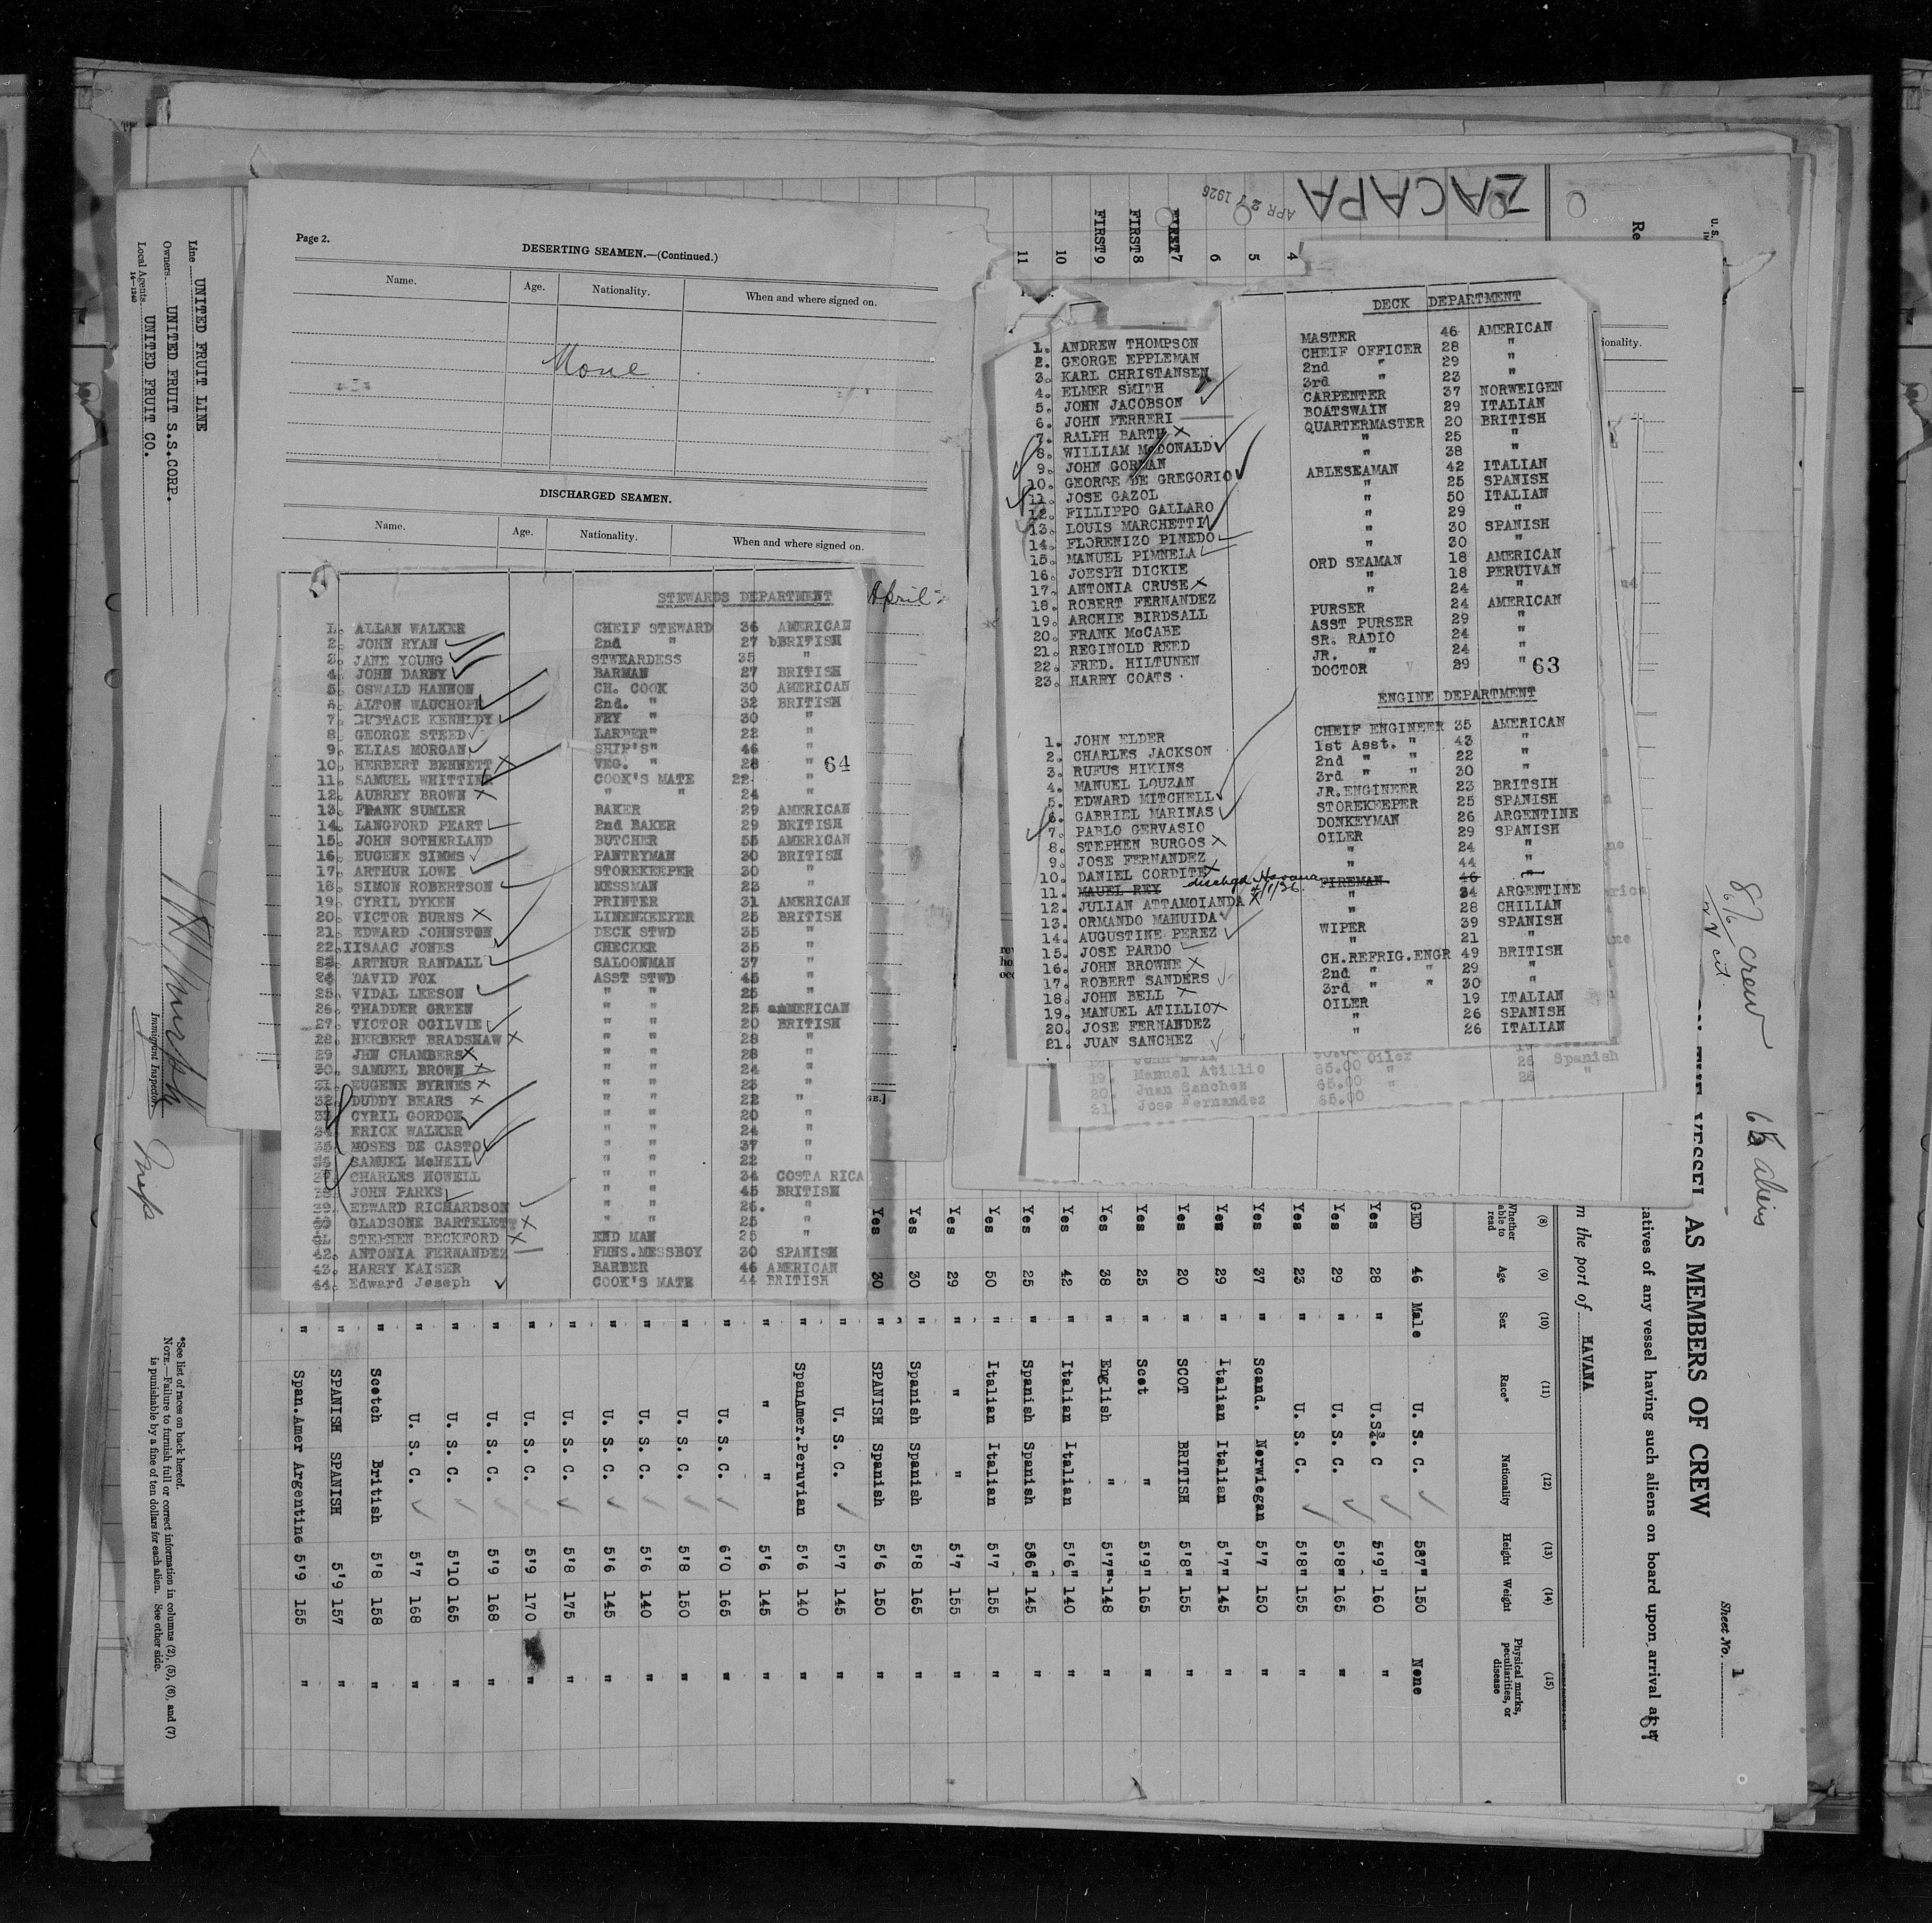 Page 2.
DESERTING SEAMEN.—(Continued.)
Name. Age. Nationality. When and where signed on.
None
DISCHARGED SEAMEN.
Name. Age. Nationality. When and where signed on.
April
STEWARDS DEPARTMENT
1. ALLAN WALKER CHEIF STEWARD 36 AMERICAN
2. JOHN RYAN 2nd " 27 bBRITISH
3. JANE YOUNG STWEARDESS 35 "
4. JOHN DARBY BARMAN 27 BRITISH
5. OSWALD HANNON CH. COOK 30 AMERICAN
6. ALTON WAUCHOPE 2nd. " 32 BRITISH
7. EUSTACE KENNEDY FRY " 30 "
8. GEORGE STEED LARDER" 22 "
9. ELIAS MORGAN SHIP'S" 46 "
10. HERBERT BENNETT VEG. " 28 " 64
11. SAMUEL WHITTIER COOK'S MATE 22. "
12. AUBREY BROWN " " 24 "
13. FRANK SUMLER BAKER 29 AMERICAN
14. LANGFORD PEART 2nd BAKER 29 BRITISH
15. JOHN SOTHERLAND BUTCHER 55 AMERICAN
16. EUGENE SIMMS PANTRYMAN 30 BRITISH
17. ARTHUR LOWE STOREKEEPER 30 "
18. SIMON ROBERTSON MESSMAN 23 "
19. CYRIL DYKEN PRINTER 31 AMERICAN
20. VICTOR BURNS LINENKEEPER 25 BRITISH
21. EDWARD JOHNSTON DECK STWD 35 "
22. IISAAC JONES CHECKER 35 "
23. ARTHUR RANDALL SALOONMAN 37 "
24 DAVID FOX ASST STWD 45 "
25. VIDAL LEESON " " 25 "
26. THADDER GREEN " " 25 amAMERICAN
27. VICTOR OGILVIE " " 20 BRITISH
28. HERBERT BRADSHAW " " 28 "
29 JHN CHAMBERS " " 28 "
30. SAMUEL BROWN " " 24 "
31. EUGENE BYRNES " " 23 "
32. DUDDY BEARS " " 22 "
33. CYRIL GORDON " " 20 "
34. ERICK WALKER " " 24 "
35. MOSES DE CASTO " " 37 "
36 SAMUEL McNEIL " " 22 "
37. CHARLES HOWELL " " 34 COSTA RICA
38. JOHN PARKS " " 45 BRITISH
39. EDWARD RICHARDSON " " 26. "
40 GLADSONE BARTELETT " " 25 "
41. STEPHEN BECKFORD END MAN 25 "
42. ANTONIA FERNANDEZ FMNS.MESSBOY 30 SPANISH
43. HARRY KAISER BARBER 46 AMERICAN
44. Edward Joseph COOK'S MATE 44 BRITISH
DECK DEPARTMENT
1. ANDREW THOMPSON MASTER 46 AMERICAN
2. GEORGE EPPLEMAN CHEIF OFFICER 28 "
3. KARL CHRISTANSEN 2nd " 29 "
4. ELMER SMITH 3rd " 23 "
5. JOHN JACOBSON CARPENTER 37 NORWEIGEN
6. JOHN FERRERI BOATSWAIN 29 ITALIAN
7. RALPH BARTH QUARTERMASTER 20 BRITISH
8. WILLIAM McDONALD " 25 "
9. JOHN GORMAN " 38 "
10. GEORGE DE GREGORIO ABLESEAMAN 42 ITALIAN
11. JOSE GAZOL " 25 SPANISH
12. FILLIPPO GALLARO " 50 ITALIAN
13. LOUIS MARCHETTI " 29 "
14. FLORENIZO PINEDO " 30 SPANISH
15. MANUEL PIMNELA " 30 "
16. JOESPH DICKIE ORD SEAMAN 18 AMERICAN
17. ANTONIA CRUSE " 18 PERUIVAN
18. ROBERT FERNANDEZ " 24 "
19. ARCHIE BIRDSALL PURSER 24 AMERICAN
20. FRANK McCABE ASST PURSER 29 "
21. REGINOLD REED SR. RADIO 24 "
22. FRED. HILTUNEN JR. " 24 "
23. HARRY COATS DOCTOR 29 " 63
ENGINE DEPARTMENT
1. JOHN ELDER CHEIF ENGINEER 35 AMERICAN
2. CHARLES JACKSON 1st Asst. " 43 "
3. RUFUS HIKINS 2nd " " 22 "
4. MANUEL LOUZAN 3rd " " 30 "
5. EDWARD MITCHELL JR.ENGINEER 23 BRITSIH
6. GABRIEL MARINAS STOREKEEPER 25 SPANISH
7. PABLO GERVASIO DONKEYMAN 26 ARGENTINE
8. STEPHEN BURGOS OILER 29 SPANISH
9. JOSE FERNANDEZ " 24 "
10. DANIEL CORDITE " 44 "
11. MAUEL REY dischgd Havana 4/1/26. FIREMAN 46 "
12. JULIAN ATTAMOIANDA " 34 ARGENTINE
13. ORMANDO MAHUIDA " 28 CHILIAN
14. AUGUSTINE PEREZ WIPER 39 SPANISH
15. JOSE PARDO " 21 "
16. JOHN BROWNE CH.REFRIG.ENGR 49 BRITISH
17. ROBERT SANDERS 2nd " " 29 "
18. JOHN BELL 3rd " " 30 "
19. MANUEL ATILLIO OILER 19 ITALIAN
20. JOSE FERNANDEZ " 26 SPANISH
21. JUAN SANCHEZ " 26 ITALIAN
19. Manuel Atillio 65.00 Oiler 26 Spanish
20. Juan Sanchez 65.00 " 26 "
21. Jose Fernandez 65.00
ZACAPA
APR 27 1926
Sheet No. 1
AS MEMBERS OF CREW
tatives of any vessel having such aliens on board upon arrival at
m the port of HAVANA
87 crew
65 aliens
(8) Whether able to read (9) Age (10) Sex (11) Race* (12) Nationality (13) Height (14) Weight (15) Physical marks, peculiarities, or disease
GED 46 Male U. S. C. 587" 150 None
Yes 28 " U.S. C 5'9" 160 "
Yes 29 " U. S. C. 5'8" 165 "
Yes 23 " U. S. C. 5'8" 155 "
Yes 37 " Scand. Norwiegan 5'7 150 "
Yes 29 " Italian Italian 5'7" 145 "
Yes 20 " SCOT BRITISH 5'8" 155 "
Yes 25 " Scot " 5'9" 165 "
Yes 38 " English " 5'7" 148 "
Yes 42 " Italian Italian 5'6" 140 "
Yes 25 " Spanish Spanish 586" 145 "
Yes 50 " Italian Italian 5'7 155 "
Yes 29 " " " 5'7 155 "
Yes 30 " Spanish Spanish 5'8 165 "
Yes 30 " SPANISH Spanish 5'6 150 "
" U. S. C. 5'7 145 "
" SpanAmer.Peruvian 5'6 140 "
" " " 5'6 145 "
" U. S. C. 6'0 165 "
" U. S. C. 5'8 150 "
" U. S. C. 5'6 140 "
" U. S. C. 5'6 145 "
" U. S. C. 5'8 175 "
" U. S. C. 5'9 170 "
" U. S. C. 5'9 168 "
" U. S. C. 5'10 165 "
" U. S. C. 5'7 168 "
" Scotch British 5'8 158 "
" SPANISH SPANISH 5'9 157 "
" Span.Amer Argentine 5'9 155 "
FIRST 9
FIRST 8
11 10 6 5 4
Line UNITED FRUIT LINE
Owners UNITED FRUIT S.S.CORP.
Local Agents UNITED FRUIT CO.
14-1240
Immigrant Inspector.
*See list of races on back hereof.
NOTE.—Failure to furnish full or correct information in columns (2), (5), (6), and (7)
is punishable by a fine of ten dollars for each alien. See other side.